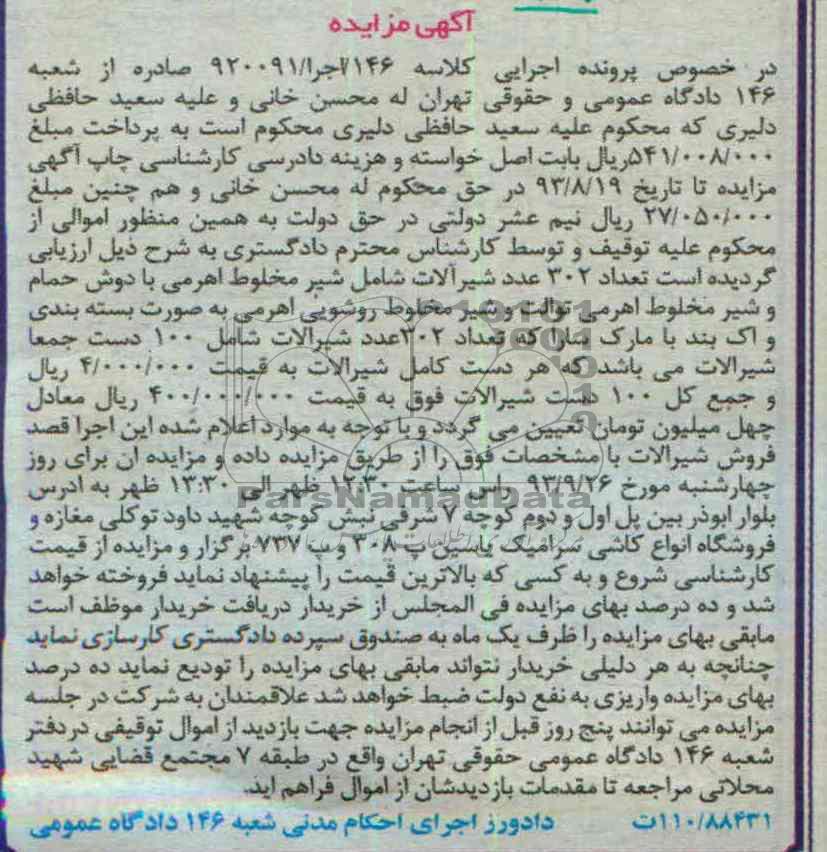 آگهی مزایده
در خصوص پرونده اجرایی کلاسه ۱۴۶/اجرا/۹۲۰۰۹۱ صادره از شعبه
۱۴۶ دادگاه عمومی و حقوقی تهران له محسن خانی و علیه سعید حافظی
دلیری که محکوم علیه سعید حافظی دلیری محکوم است به پرداخت مبلغ
۵۴۱/۰۰۸/۰۰۰ریال بابت اصل خواسته و هزینه دادرسی کارشناسی چاپ آگهی
مزایده تا تاریخ ۹۳/۸/۱۹ در حق محکوم له محسن خانی و هم چنین مبلغ
۲۷/۰۵۰/۰۰۰ ریال نیم عشر دولتی در حق دولت به همین منظور اموالی از
محکوم علیه توقیف و توسط کارشناس محترم دادگستری به شرح ذیل ارزیابی
گردیده است تعداد ۳۰۲ عدد شیرآلات شامل شیر مخلوط اهرمی با دوش حمام
و شیر مخلوط اهرمی توالت و شیر مخلوط روشویی اهرمی به صورت بسته بندی
و اک بند با مارک سارا که تعداد ۳۰۲عدد شیرالات شامل ۱۰۰ دست جمعا
شیرالات می باشد که هر دست کامل شیرالات به قیمت ۴/۰۰۰/۰۰۰ ریال
و جمع کل ۱۰۰ دست شیرالات فوق به قیمت ۴۰۰/۰۰۰/۰۰۰ ریال معادل
چهل میلیون تومان تعیین می گردد و با توجه به موارد اعلام شده این اجرا قصد
فروش شیرالات با مشخصات فوق را از طریق مزایده داده و مزایده ان برای روز
چهارشنبه مورخ ۹۳/۹/۲۶ راس ساعت ۱۲:۳۰ ظهر الی ۱۳:۳۰ ظهر به ادرس
بلوار ابوذر بین پل اول و دوم کوچه ۷ شرقی نبش کوچه شهید داود توکلی مغازه و
فروشگاه انواع کاشی سرامیک یاسین پ ۳۰۸ و پ ۷۳۷ برگزار و مزایده از قیمت
کارشناسی شروع و به کسی که بالاترین قیمت را پیشنهاد نماید فروخته خواهد
شد و ده درصد بهای مزایده فی المجلس از خریدار دریافت خریدار موظف است
مابقی بهای مزایده را ظرف یک ماه به صندوق سپرده دادگستری کارسازی نماید
چنانچه به هر دلیلی خریدار نتواند مابقی بهای مزایده را تودیع نماید ده درصد
بهای مزایده واریزی به نفع دولت ضبط خواهد شد علاقمندان به شرکت در جلسه
مزایده می توانند پنج روز قبل از انجام مزایده جهت بازدید از اموال توقیفی در دفتر
شعبه ۱۴۶ دادگاه عمومی حقوقی تهران واقع در طبقه ۷ مجتمع قضایی شهید
محلاتی مراجعه تا مقدمات بازدیدشان از اموال فراهم اید.
۱۱۰/۸۸۴۳۱ت دادورز اجرای احکام مدنی شعبه ۱۴۶ دادگاه عمومی
ParsNamadData